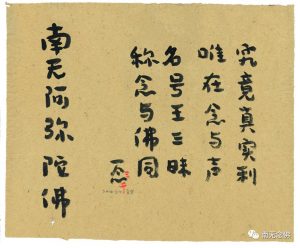 究竟真实利
唯在念与声
名号王三昧
称念与佛同
南无阿弥陀佛
南无念佛